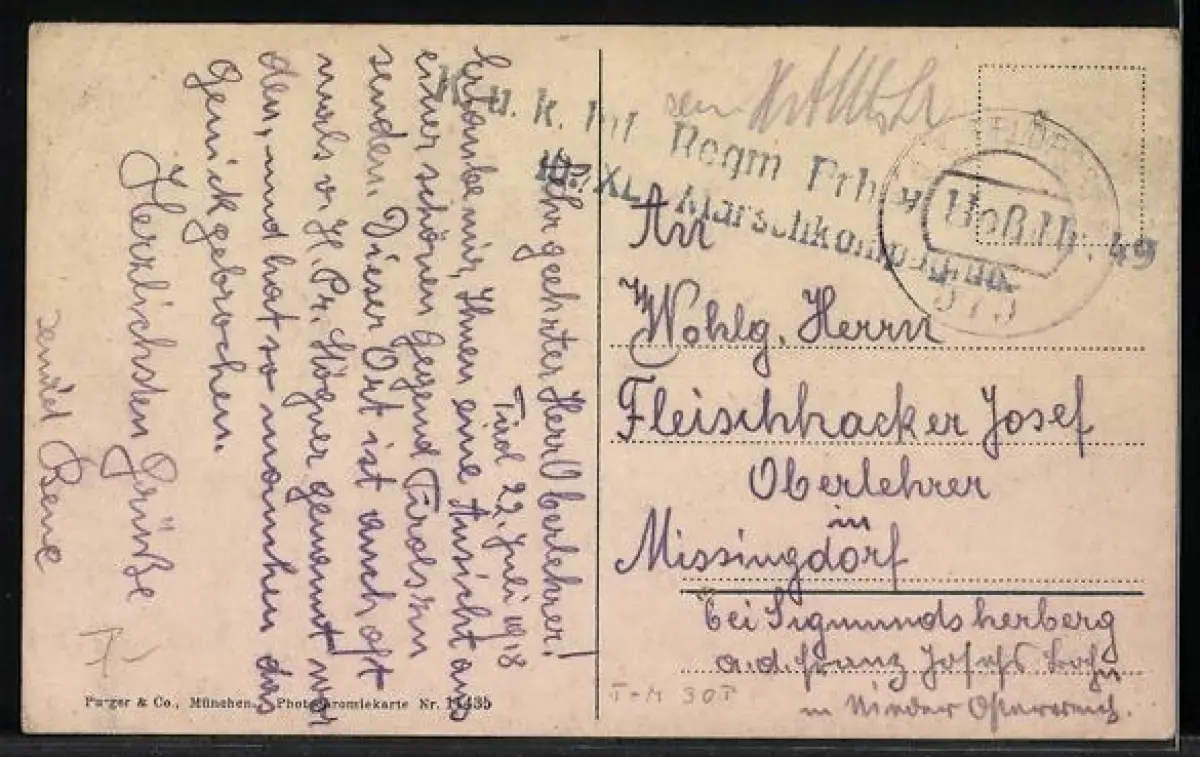 Tirol 22. Juli 1918
Sehr geehrter Herr Oberlehrer!
Erlaube mir, Ihnen eine Ansicht aus
einer schönen Gegend Tirols zu
senden. Dieser Ort ist auch oft
mals v. H. Pr. genannt wor
den, und hat so manchen das
Genick gebrochen.
Herzlichsten Grüße
K. u. k. Inf Regm Frh. v. Heß Nr. 49
XL. Marschkompagnie
573
An
Wohlg. Herrn
Fleischhacker Josef
Oberlehrer
in
Missingdorf
bei Sigmundsherberg
a. d. Franz Josefs Bahn
in Nieder Österreich.
T-M 30F
Purger & Co., München. Photochromiekarte Nr. 11435